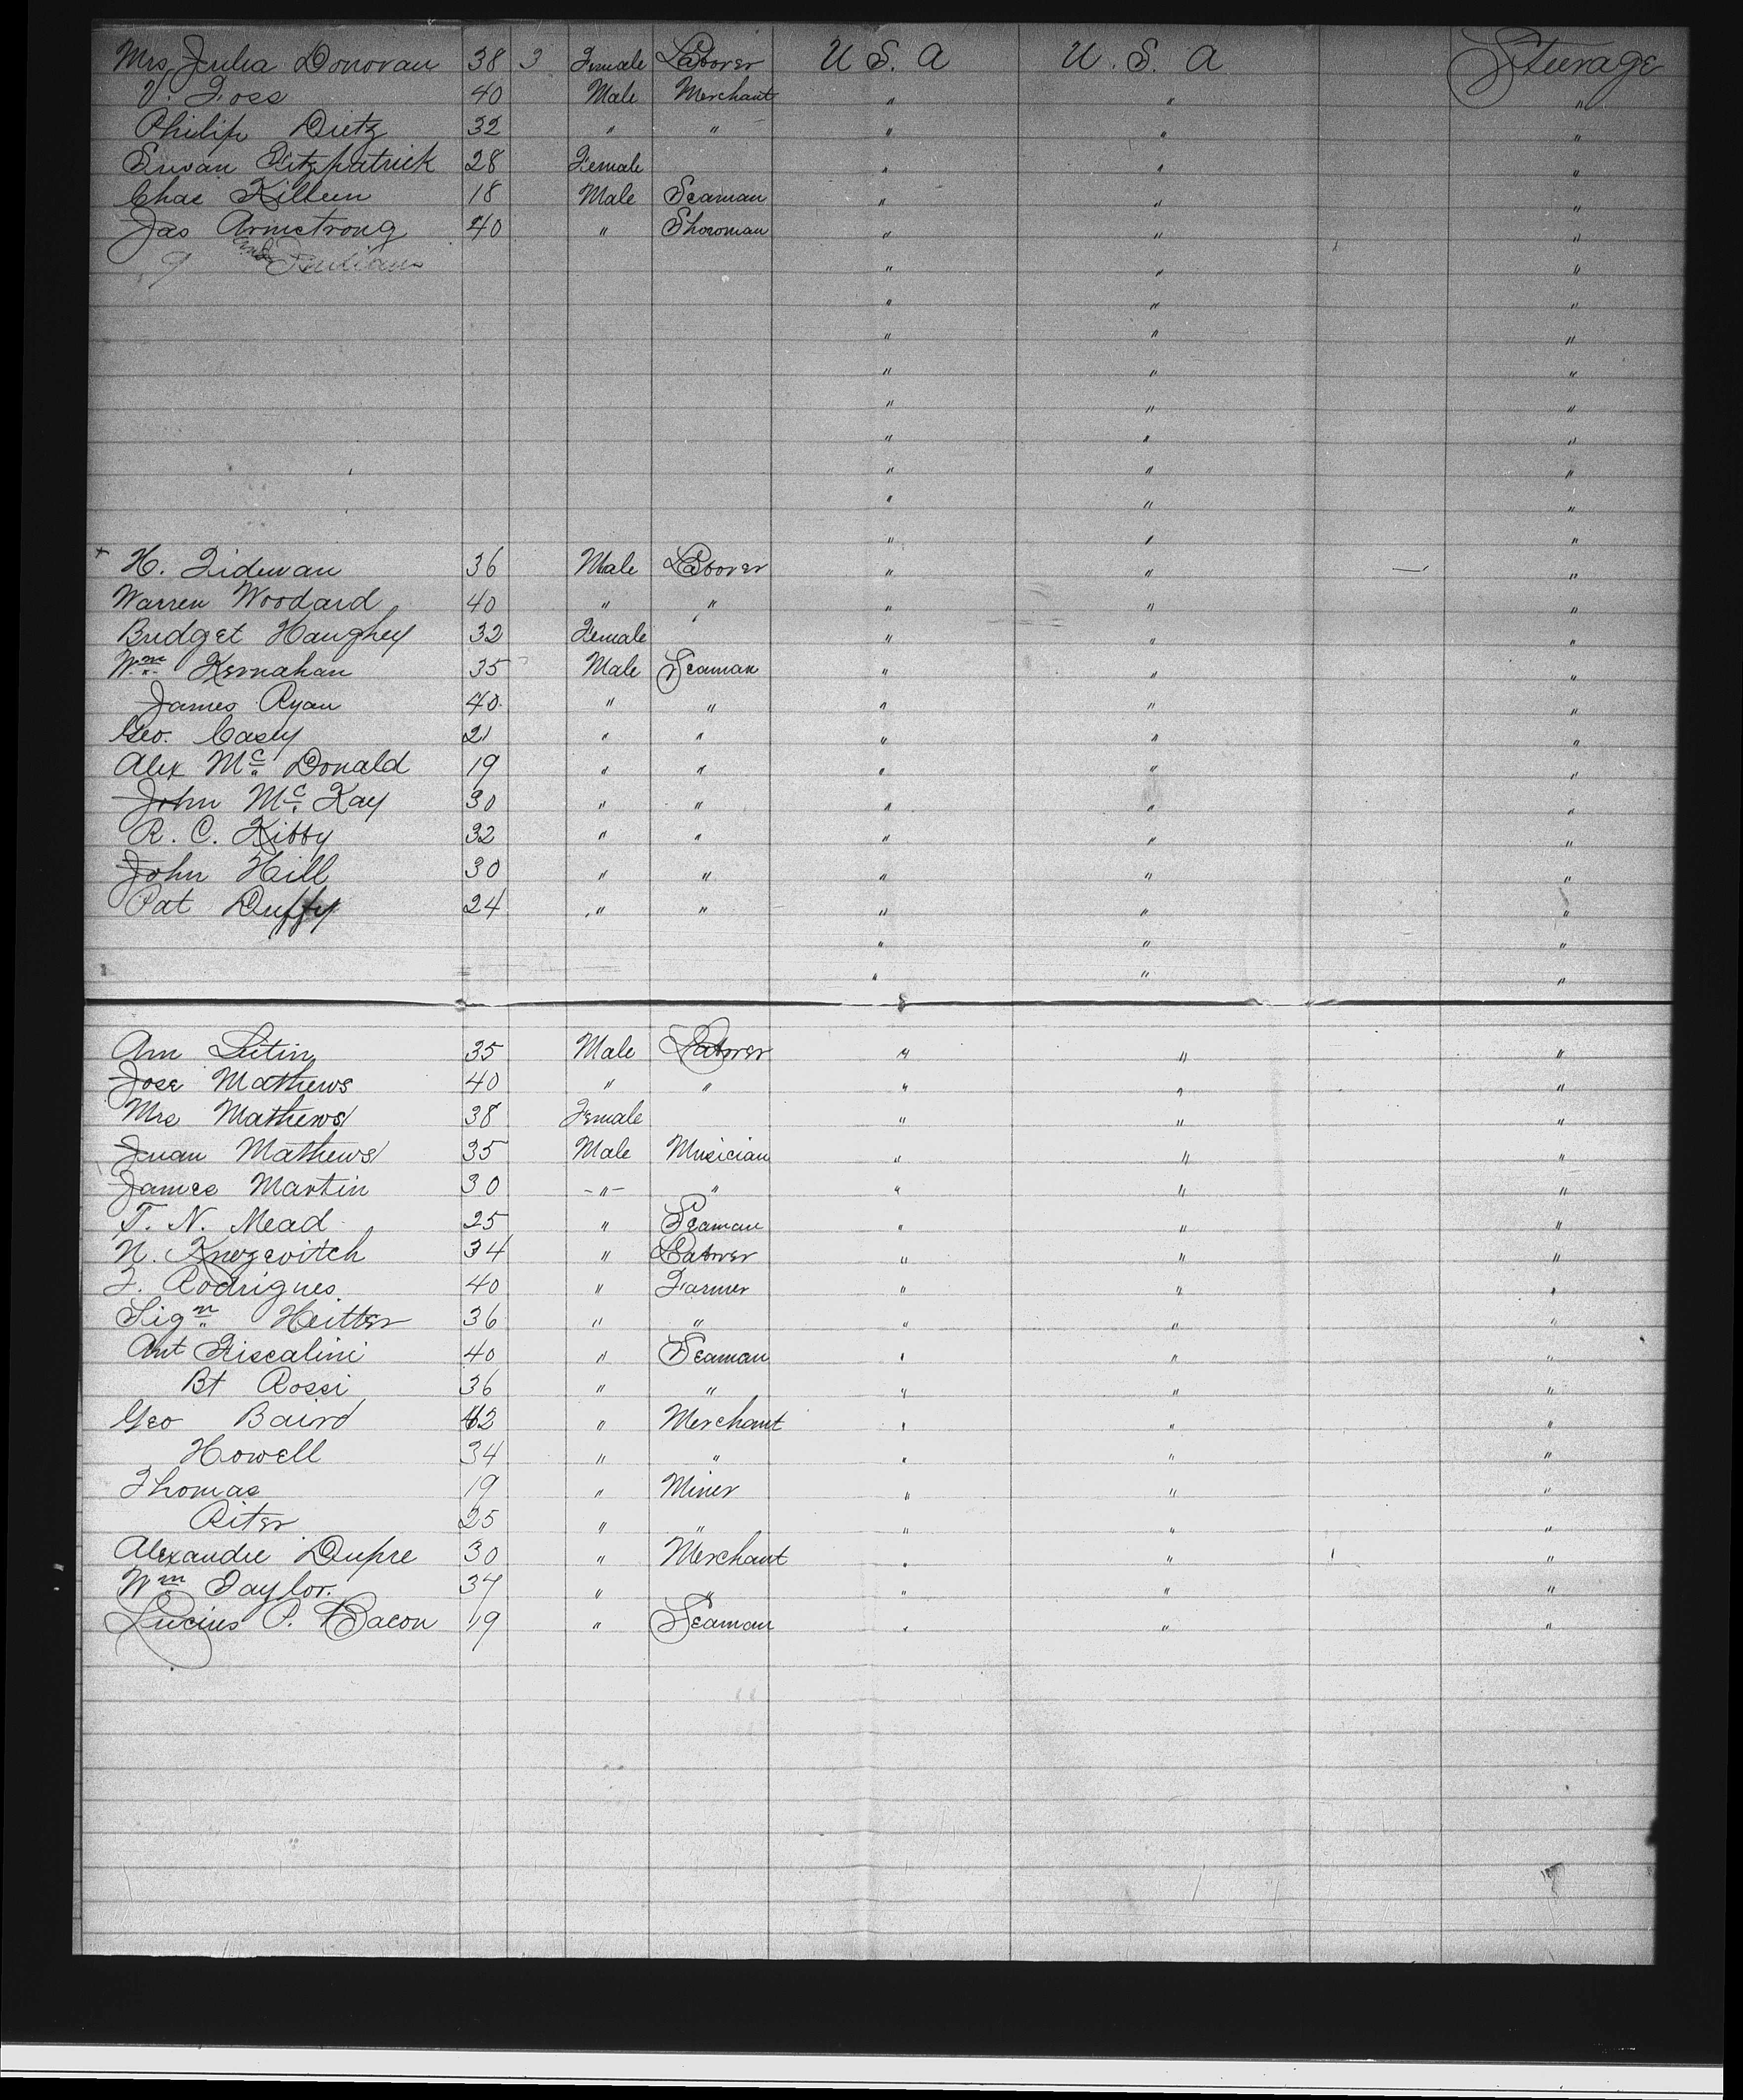 Mrs Julia Donovan 38 3 Female Laborer U S. A U. S. A Steerage
V. Foss 40 Male Merchant " " "
Philip Dietz 32 " " " " "
Susan Fitzpatrick 28 Female " " "
Chas Killeen 18 Male Seaman " " "
Jas Armstrong 40 " Showman " " "
9 Indians " " "
" " "
" " "
" " "
" " "
" " "
" " "
" " "
" " "
+ H. Tideman 36 Male Laborer " " "
Warren Woodard 40 " " " " "
Bridget Haughey 32 Female " " "
Wm Kernahan 35 Male Seaman " " "
James Ryan 40 " " " " "
Geo. Casey 21 " " " " "
Alex Mc Donald 19 " " " " "
John Mc Kay 30 " " " " "
R. C. Kibby 32 " " " " "
John Hill 30 " " " " "
Pat Duffy 24 " " " " "
" " "
" " "
Am 35 Male Laborer " " "
Jose Mathews 40 " " " " "
Mrs Mathews 38 Female " " "
Juan Mathews 35 Male Musician " " "
James Martin 30 -"- " " " "
T. N. Mead 25 " Seaman " " "
N. Knezevitch 34 " Laborer " " "
F. Rodrigues. 40 " Farmer " " "
Sign Heitter 36 " " " " "
Ant Fiscalini 40 " Seaman " " "
Bt Rossi 36 " " " " "
Geo Baird 42 " Merchant " " "
Howell 34 " " " " "
Thomas 19 " Miner " " "
Riter 25 " " " " "
Alexandre Dupre 30 " Merchant " " "
Wm Taylor. 34 " " " " "
Lucius P. Bacon 19 " Seaman " " "